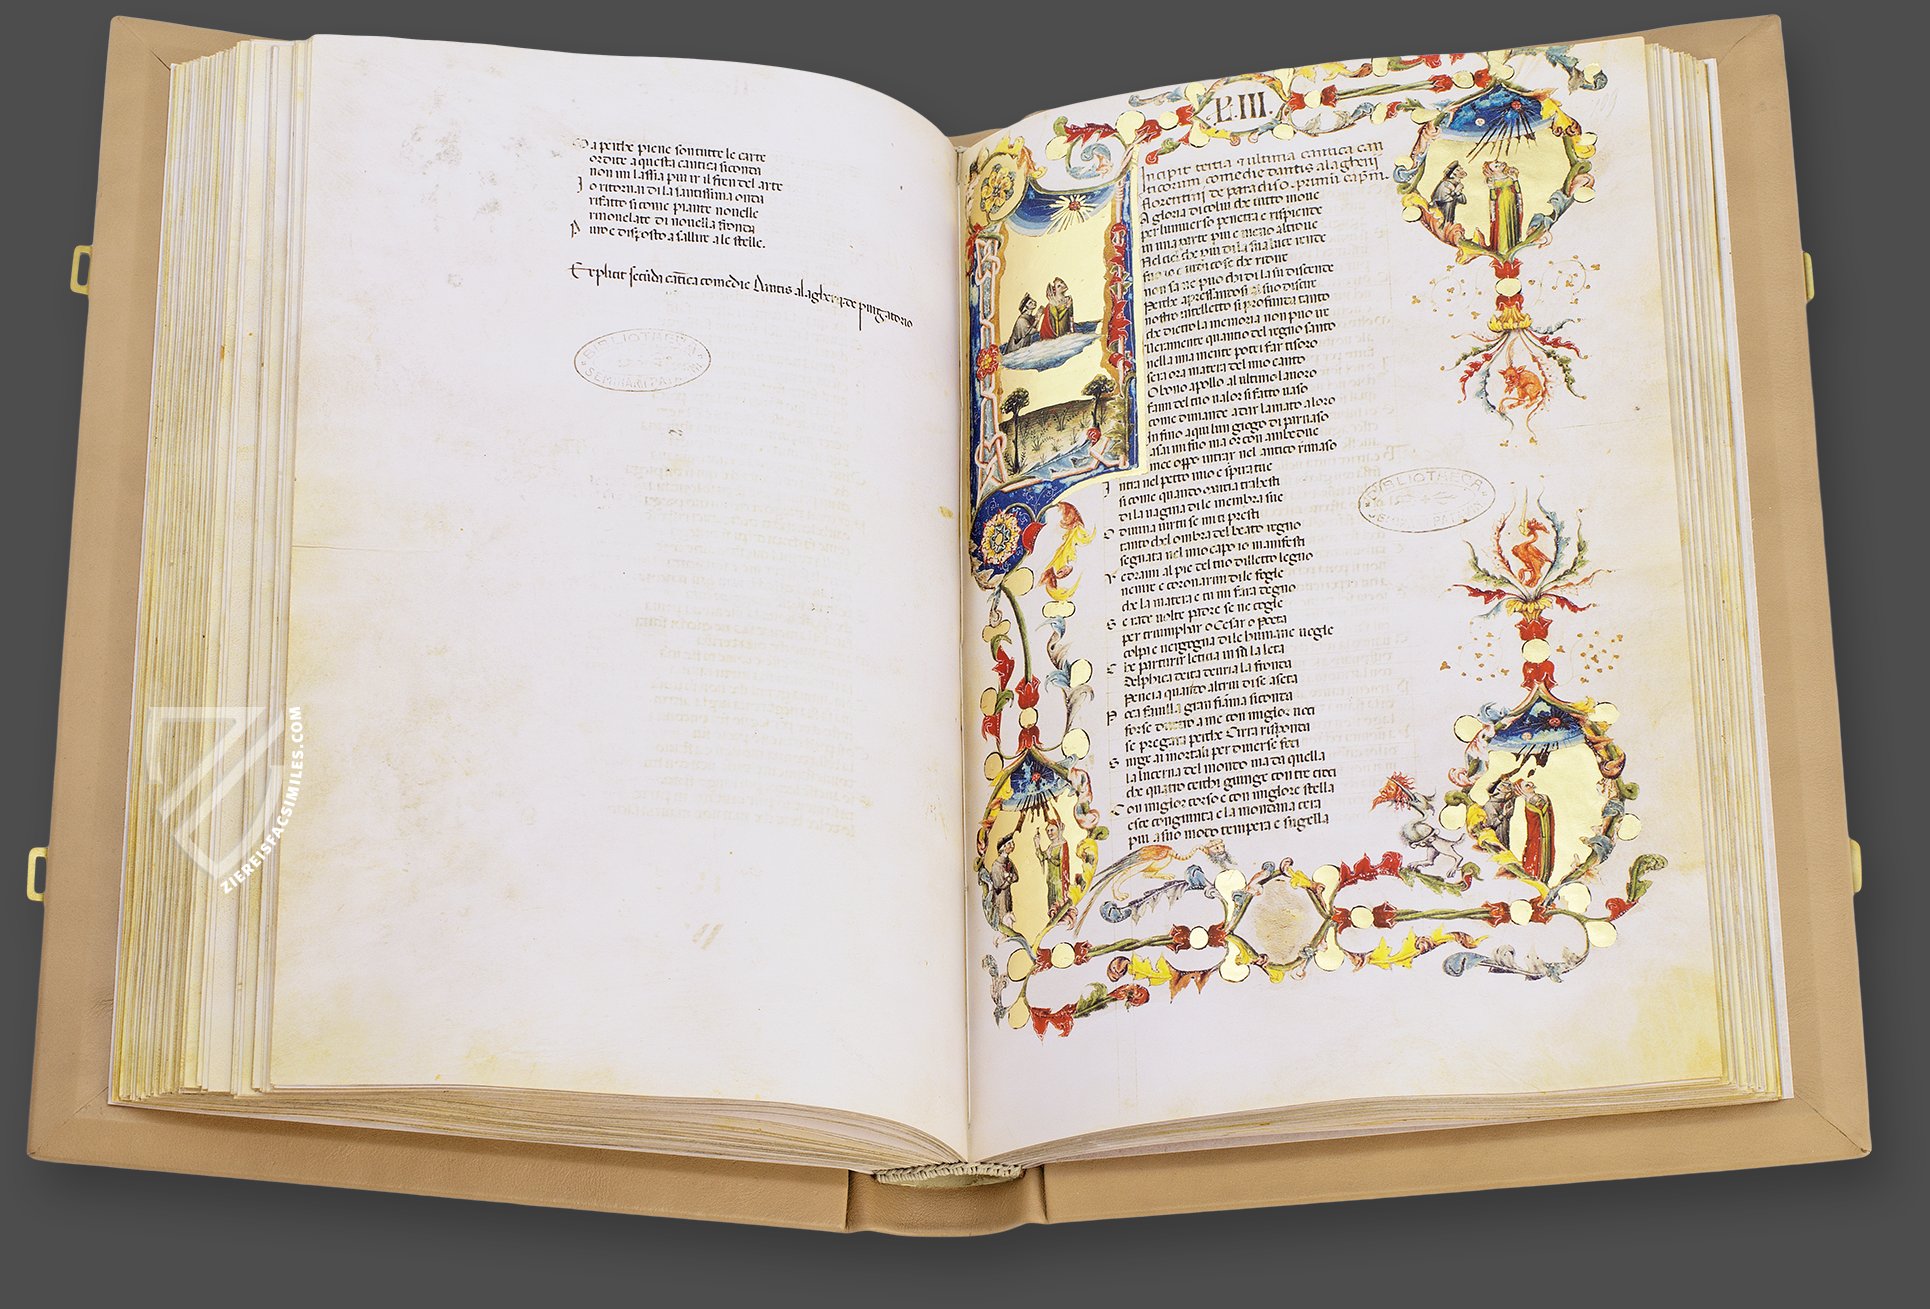 Ma perche piene son tutte le carte
ordite a questa cantica siconda
non mi lassia piu ir il fren del arte
Io ritornai di la santissima onda
rifatto si come piante nouelle
rinouelate di nouella fronda
Puro e disposto a sallire a le stelle.
Explicit secunda cantica comedie Dantis alagherii de purgatorio
BIBLIOTHECA
SEMINARII PATAVINI
P. III.
Incipit tertia et ultima cantica can
ticorum comedie dantis alagherii
florentini de paradiso. primum capitulum.
La gloria di colui che tutto moue
per luniuerso penetra e risplende
in una parte piu e meno altroue
Nel ciel che piu di la sua luce rende
fu io e uidi cose che ridire
non sa ne puo chi di la su discende
Perche apressando si al suo disire
nostro intelletto si profunda tanto
che dietro la memoria non puo ire
Ueramente quanto del regno santo
nella mia mente potei far tesoro
sera ora matera del mio canto
O bono apollo al ultimo lauoro
fami del tuo ualor si fatto uaso
come dimande a dar lamato aloro
In fino a qui lun giogo di parnaso
assai mi fuo ma or con ambedue
mee oppo intrar nel antico rimaso
Intra nel petto mio e spira tue
si come quando marsia traesti
di la uagina di le membra sue
O diuina uirtu se mi ti presti
tanto che lombra del beato regno
segnata nel mio capo io manifesti
Vedrami al pie del tuo diletto legno
uenire e coronarmi di le fogle
che la matera e tu mi farai degno
Si rade uolte padre se ne cogle
per triumphar o Cesar o Poeta
colpa e uergogna di le humane uogle
Che parturir leticia in su la leta
delphica deita deuria la fronda
Peneia quando altrui di se aseta
Poca fauilla gran fiamma siconda
forse diretro a me con miglor uoci
se pregara perche Cirra risponda
Surge ai mortali per diuerse foci
la lucerna del mondo ma da quella
che quatro cerchi giunge con tre croci
Con miglor corso e con miglore stella
esce congiunta e la mondana cera
piu a suo modo tempera e sugella
BIBLIOTHECA
SEM PATAVIN
ZIEREISFACSIMILES.COM